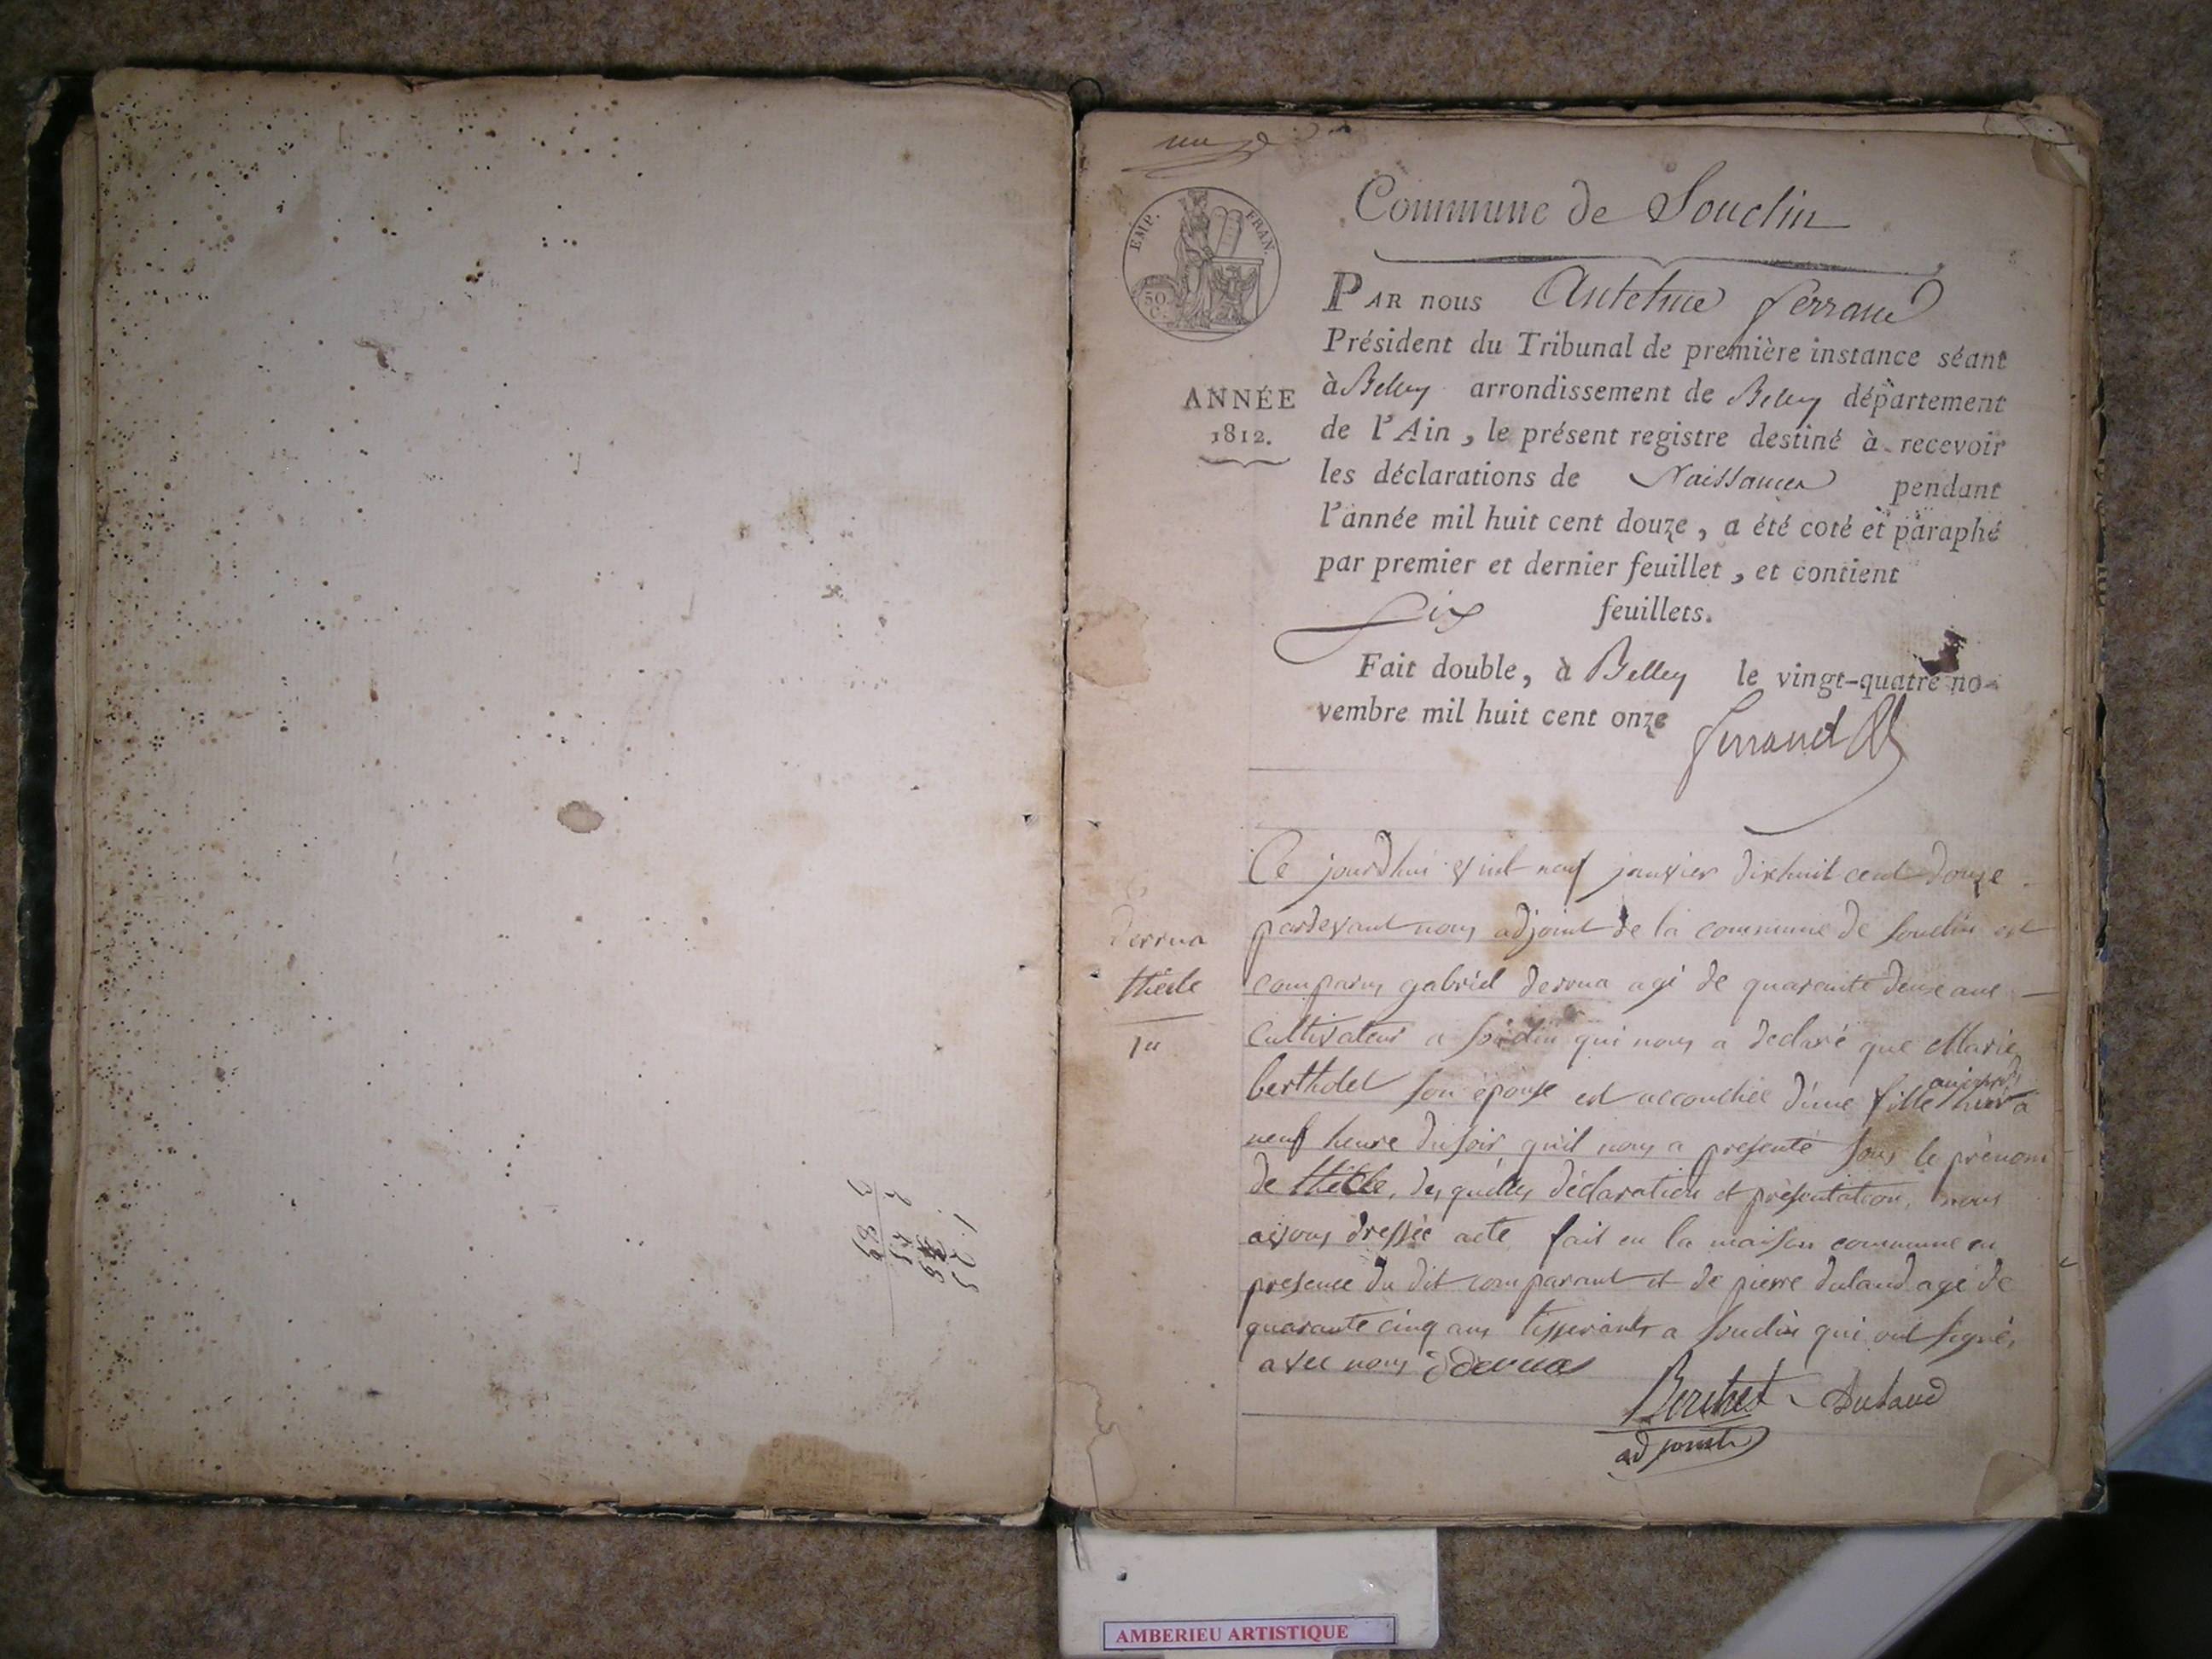 EMP. FRAN.
50 C.
Commune de Souclin
PAR nous Antelme ferrand
Président du Tribunal de première instance séant
ANNÉE
1812.
à Belley arrondissement de Belley département
de l'Ain, le présent registre destiné à recevoir
les déclarations de Naissances pendant
l'année mil huit cent douze, a été coté et paraphé
par premier et dernier feuillet, et contient
Six feuillets.
Fait double, à Belley le vingt-quatre no-
vembre mil huit cent onze
ferrand
derrua
thècle
1er
Ce jourdhui vint neuf janvier dixhuit cent douze
pardevant nous adjoint de la commune de Souclin est
comparus gabriel derrua agé de quarante deux ans
Cultivateur a Souclin qui nous a declaré que Marie
bertholet son épouse est accouchée d'une fille hier a
neuf heure du soir, quil nous a presenté sous le prénom
de thècle, desquelles déclaration et présentation, nous
avons dressée acte fait en la maison commune en
presence du dit comparant et de pierre dutaud agé de
quarante cinq ans tisserants a Souclin qui ont signé,
avec nous derrua
Berthet Dutaud
adjoint
AMBERIEU ARTISTIQUE